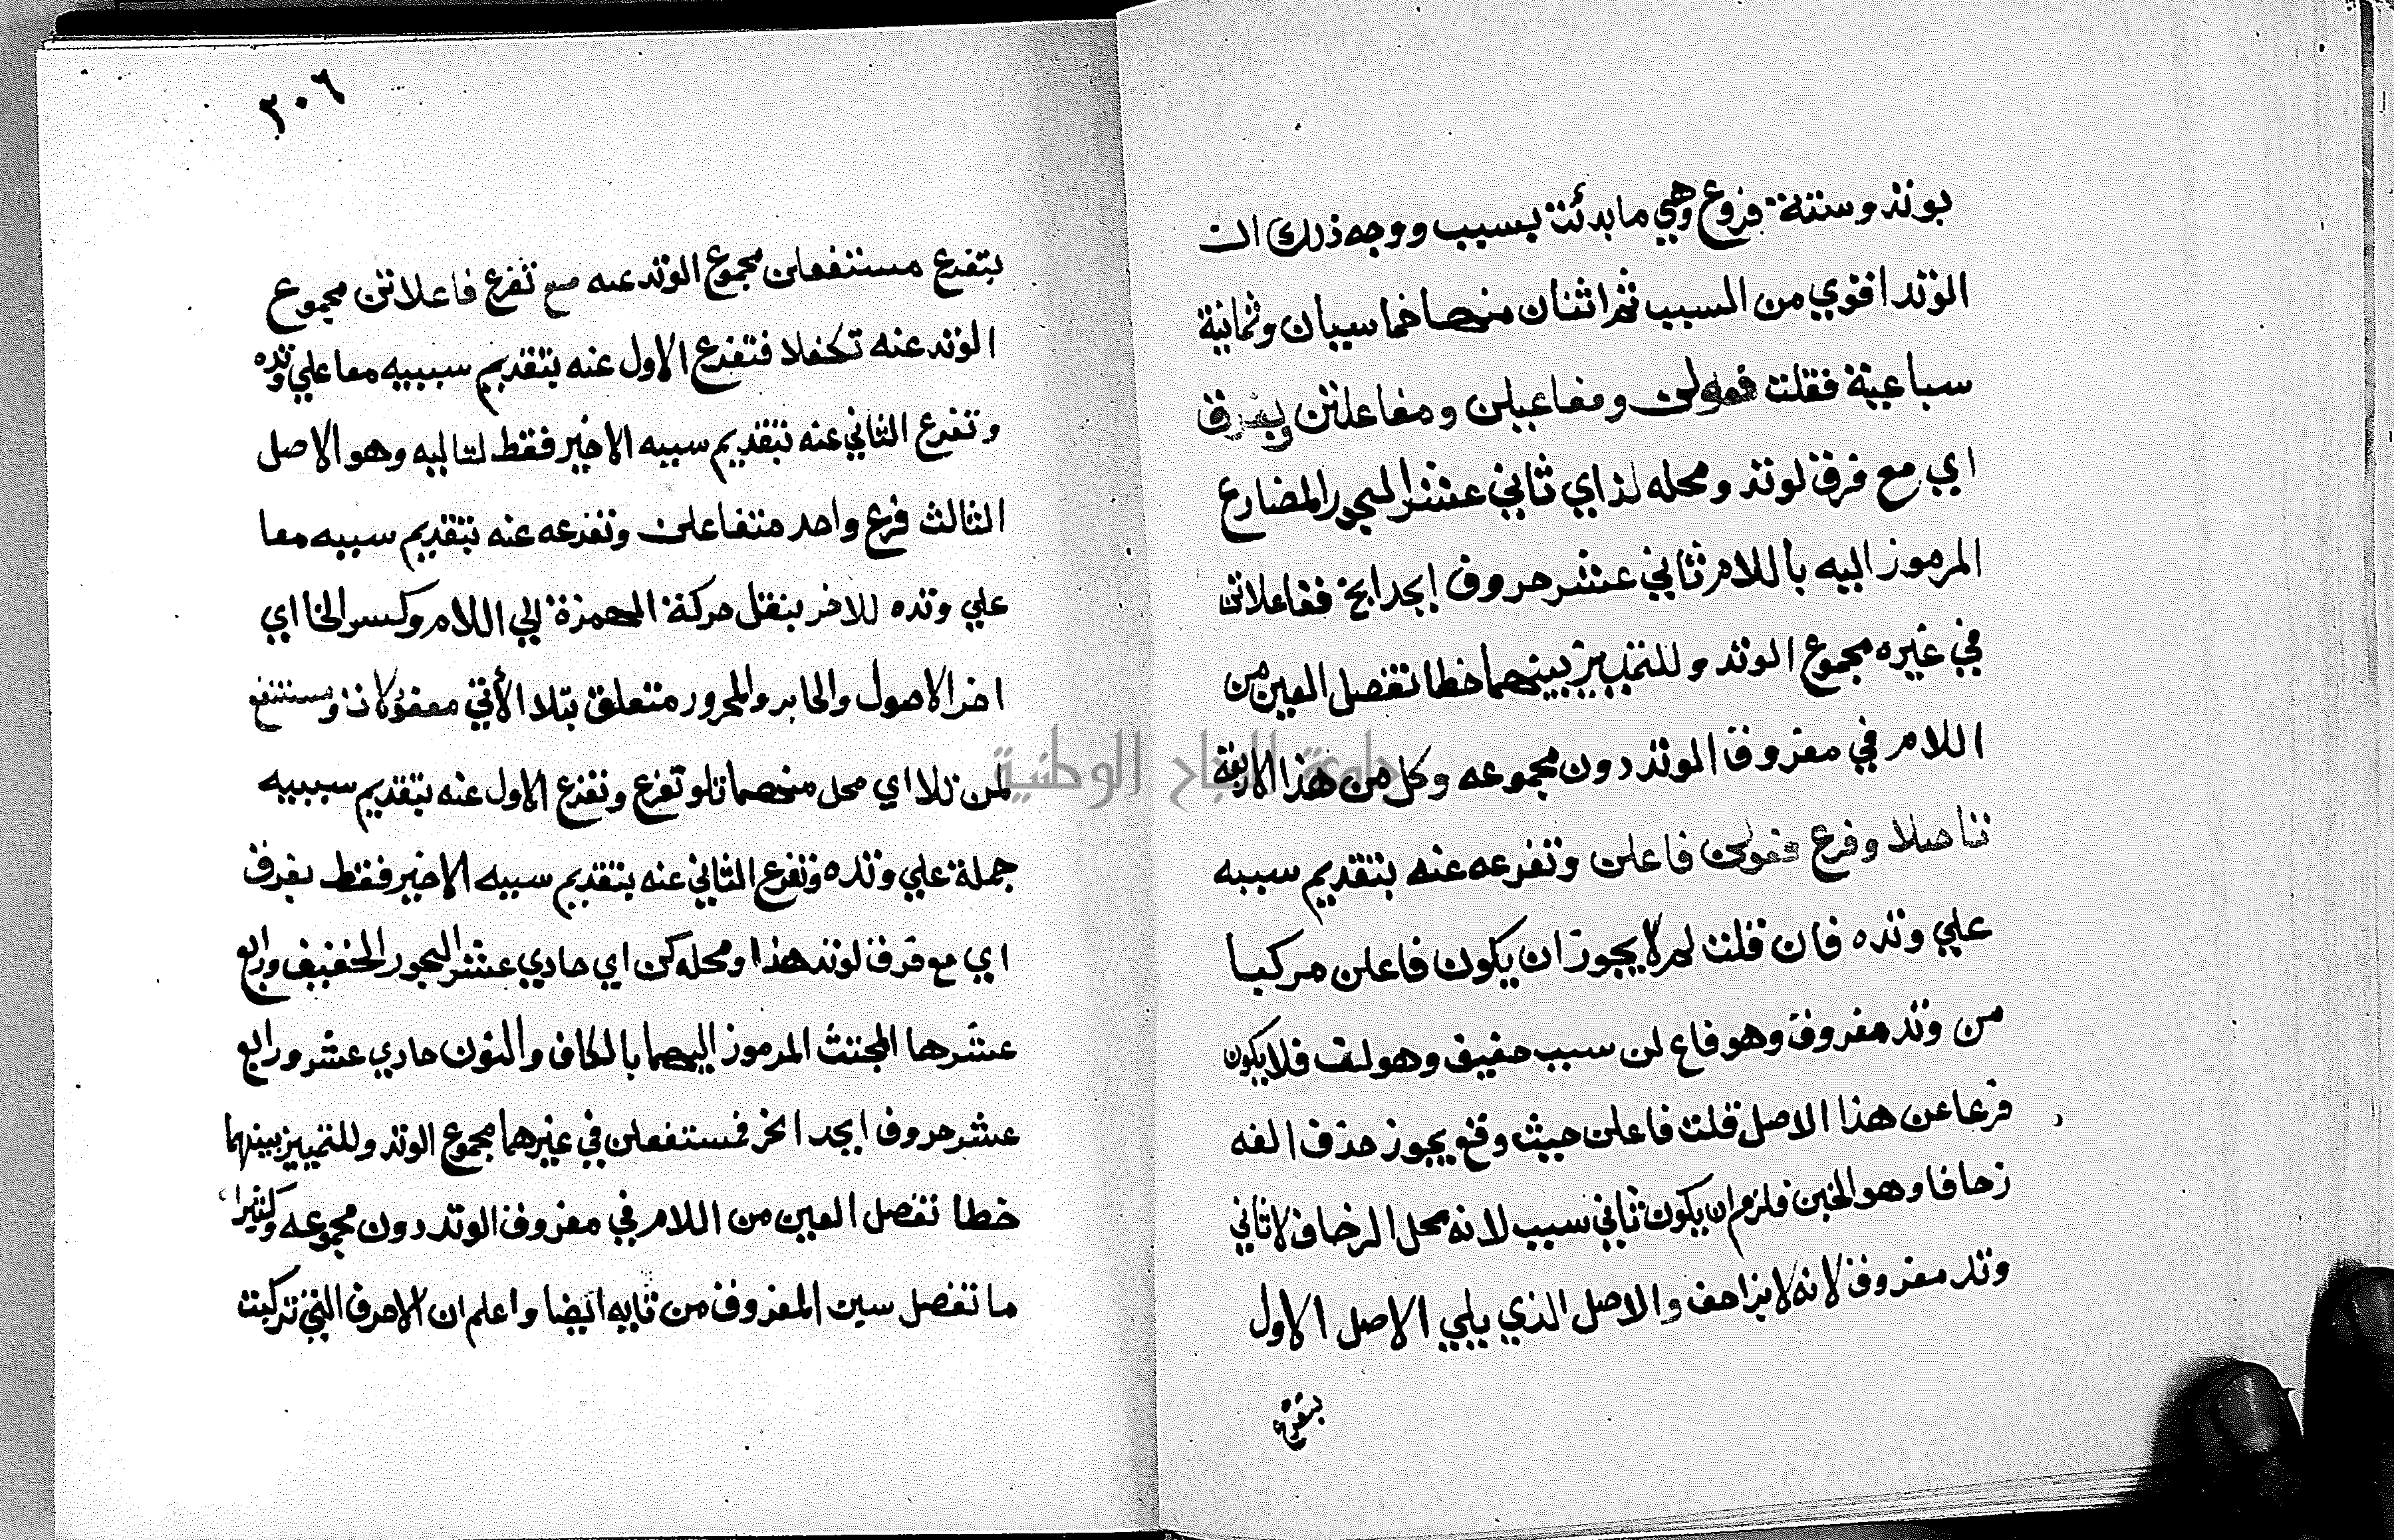 بوتد وستة فروع وهي ما بدئت بسبب ووجه ذلك ان
الوتد اقوي من السبب ثم اثنان منهما خماسيان وثمانية
سباعية فقلت فعولن ومفاعيلن ومفاعلتن وبفرق
اي مع فرق لوتد ومحله لذاي ثاني عشر البحور المضارع
المرموز اليه باللام ثاني عشر حروف ابجد ابخ ففاعلاتن
في غيره مجموع الوتد وللتمييز بينهما خطا تفصل العين من
اللام في مفروق الوتد دون مجموعه وكل من هذا الاربعة
تناصلا وفرع فعولن فاعلن وتفرعه عنه بتقديم سببه
علي وتده فان قلت لم لا يجوز ان يكون فاعلن مركبا
من وتد مفروق وهو فاع لن سبب خفيف وهو لن فلا يكون
فرعا عن هذا الاصل قلت فاعلن حيث وقع يجوز حذف الفه
زحافا وهو الخبن فلزم ان يكون ثاني سبب لانه محل الزحاف لا ثاني
وتد مفروق لانه لا يزاحف والاصل الذي يلي الاصل الاول
بتفرع
٣٠٦
بتفرع مستفعلن مجموع الوتد عنه مع تفرع فاعلاتن مجموع
الوتد عنه تكفلا فتفرع الاول عنه بتقديم سببيه معا علي وتده
وتفرع الثاني عنه بتقديم سببه الاخير فقط لتاليه وهو الاصل
الثالث فرع واحد متفاعلن وتفرعه عنه بتقديم سببه معا
علي وتده للاخر بنقل حركة الهمزة الي اللام وكسر الخا اي
اخر الاصول والجار والمجرور متعلق بتلا الأتي مفعولات ومستفع
لمن تلا اي محل منهما تلو تفرع وتفرع الاول عنه بتقديم سببيه
جملة علي وتده وتفرع الثاني عنه بتقديم سببه الاخير فقط بفرق
اي مع فرق لوتد هذا ومحله كن اي حادي عشر البحور الخفيف ورابع
عشرها المجتث المرموز اليهما بالكاف والنون حادي عشر ورابع
عشر حروف ابجد الخ فمستفعلن في غيرهما مجموع الوتد وللتمييز بينهما
خطا تفصل العين من اللام في مفروق الوتد دون مجموعه وكثيرا
ما تفصل سين المفروق من تايه ايضا واعلم ان الاحرف التي تركبت
جامعة النجاح الوطنية